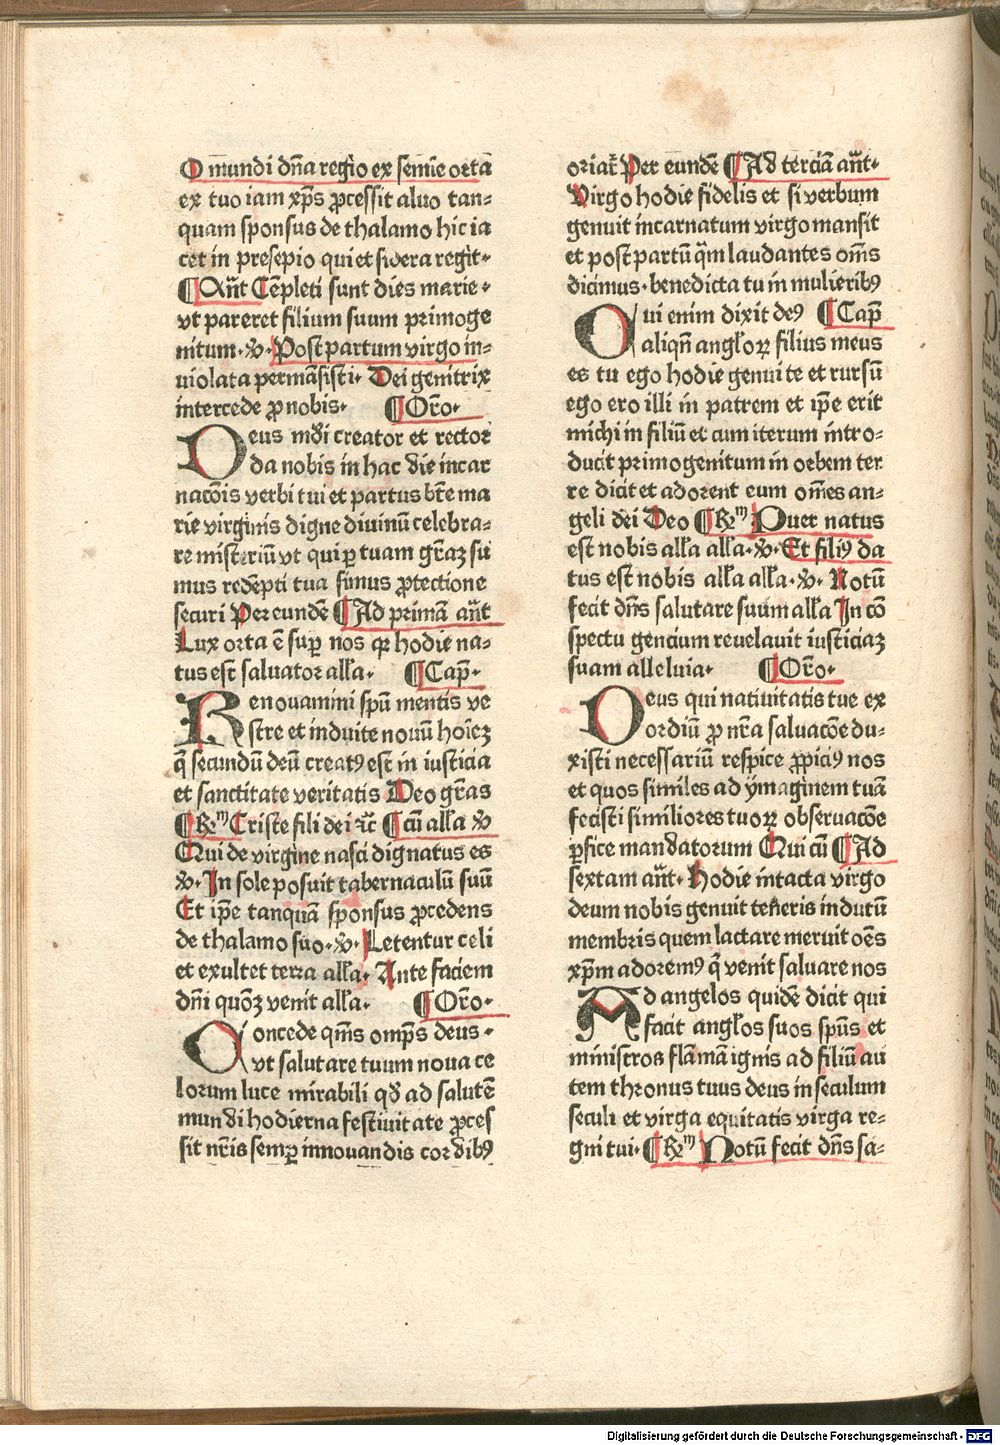 O mundi dn̄a regio ex semīe orta
ex tuo iam xp̄s ꝓcessit aluo tan⸗
quam sponsus de thalamo hic ia
cet in presepio qui et sidera regit·
¶ Añt Cēpleti sunt dies marie·
vt pareret filium suum primoge
nitum·℣· Post partum virgo in⸗
uiolata permāsisti· Dei genitrix
intercede ꝓ nobis· ¶ Or̄o·
Deus mūdi creator et rector
da nobis in hac die incar
nac̄ōis verbi tui et partus bt̄e ma
rie virginis digne diuinū celebra⸗
re misteriū vt qui ꝑ tuam gr̄aꝫ su
mus redēpti tua simus ꝓtectione
securi Per eundē ¶ Ad primā añt
Lux orta ē suꝑ nos qꝛ hodie na⸗
tus est saluator alla· ¶ Cap̄·
Renouamini spū mentis ve
stre et induite nouū hoīeꝫ
q̄ secundū deū creatꝰ est in iusticia
et sanctitate veritatis Deo gr̄as
¶ R̄m Criste fili dei ⁊c̄ ¶ cū alla ℣
Qui de virgine nasci dignatus es
℣· In sole posuit tabernaculū suū
Et ip̄e tanquā sponsus ꝓcedens
de thalamo suo·℣· Letentur celi
et exultet terra alla· Ante faciem
dn̄i quōꝫ venit alla· ¶ Or̄o·
Concede qm̄s omp̄s deus·
vt salutare tuum noua ce
lorum luce mirabili qd̄ ad salutē
mundi hodierna festiuitate ꝓces
sit nr̄is semꝑ innouandis cordibꝰ
oriat᷑ Per eundē ¶ Ad terciā añt·
Virgo hodie fidelis et si verbum
genuit incarnatum virgo mansit
et post partū q̄m laudantes om̄s
dicimus·benedicta tu in mulieribꝰ
Qui enim dixit deꝰ ¶ Cap̄
aliqn̄ angloꝝ filius meus
es tu ego hodie genui te et rursū
ego ero illi in patrem et ip̄e erit
michi in filiū et cum iterum intro⸗
ducit primogenitum in orbem ter
re dicit et adorent eum om̄es an⸗
geli dei Deo ¶ R̄m Puer natus
est nobis alla alla·℣· Et filiꝰ da
tus est nobis alla alla·℣· Notū
fecit dn̄s salutare suum alla In cō
spectu gencium reuelauit iusticiaꝫ
suam alleluia· ¶ Or̄o·
Deus qui natiuitatis tue ex
ordiū ꝓ nr̄a saluac̄ōe du⸗
xisti necessariū respice ꝓpiciꝰ nos
et quos similes ad ymaginem tuā
fecisti similiores tuoꝝ obseruac̄ōe
ꝑfice mandatorum Qui cū ¶ Ad
sextam añt· Hodie intacta virgo
deum nobis genuit teneris indutū
membris quem lactare meruit oēs
xp̄m adoremꝰ q̄ venit saluare nos
Ad angelos quidē dicit qui
facit anglos suos sp̄us et
ministros flāmā ignis ad filiū au
tem thronus tuus deus in seculum
seculi et virga equitatis virga re⸗
gni tui· ¶ R̄m Notū fecit dn̄s sa⸗
Digitalisierung gefördert durch die Deutsche Forschungsgemeinschaft - DFG